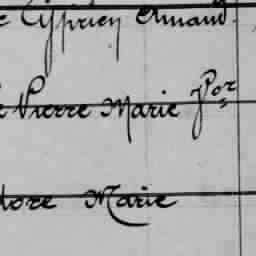 Cyprien Armand
Pierre Marie Por
dore Marie